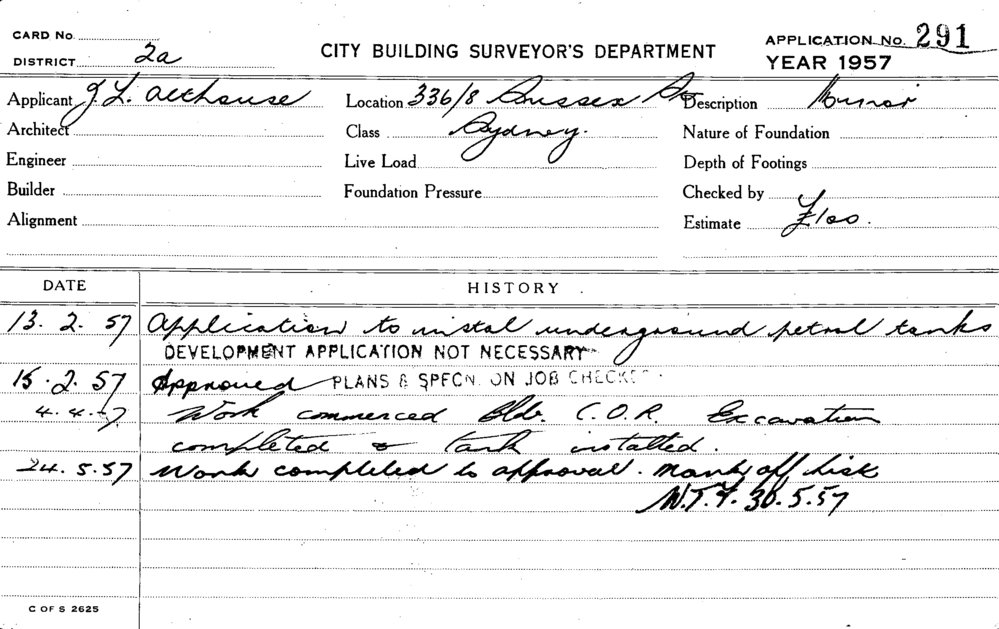 CARD No.
DISTRICT 2a
CITY BUILDING SURVEYOR'S DEPARTMENT
APPLICATION No. 291
YEAR 1957
Applicant J. L. Althouse Location 336/8 Sussex St Description Minor
Architect Class Sydney. Nature of Foundation
Engineer Live Load Depth of Footings
Builder Foundation Pressure Checked by
Alignment Estimate £100.
DATE HISTORY
13. 2. 57 Application to instal underground petrol tanks
DEVELOPMENT APPLICATION NOT NECESSARY
15. 2. 57 Approved PLANS & SPECN. ON JOB CHECKED
4. 4. 57 Work commenced Bldr. C.O.R. Excavation
completed & tank installed.
24. 5. 57 Work completed to approval. Mark off list
30.5.57
C OF S 2625